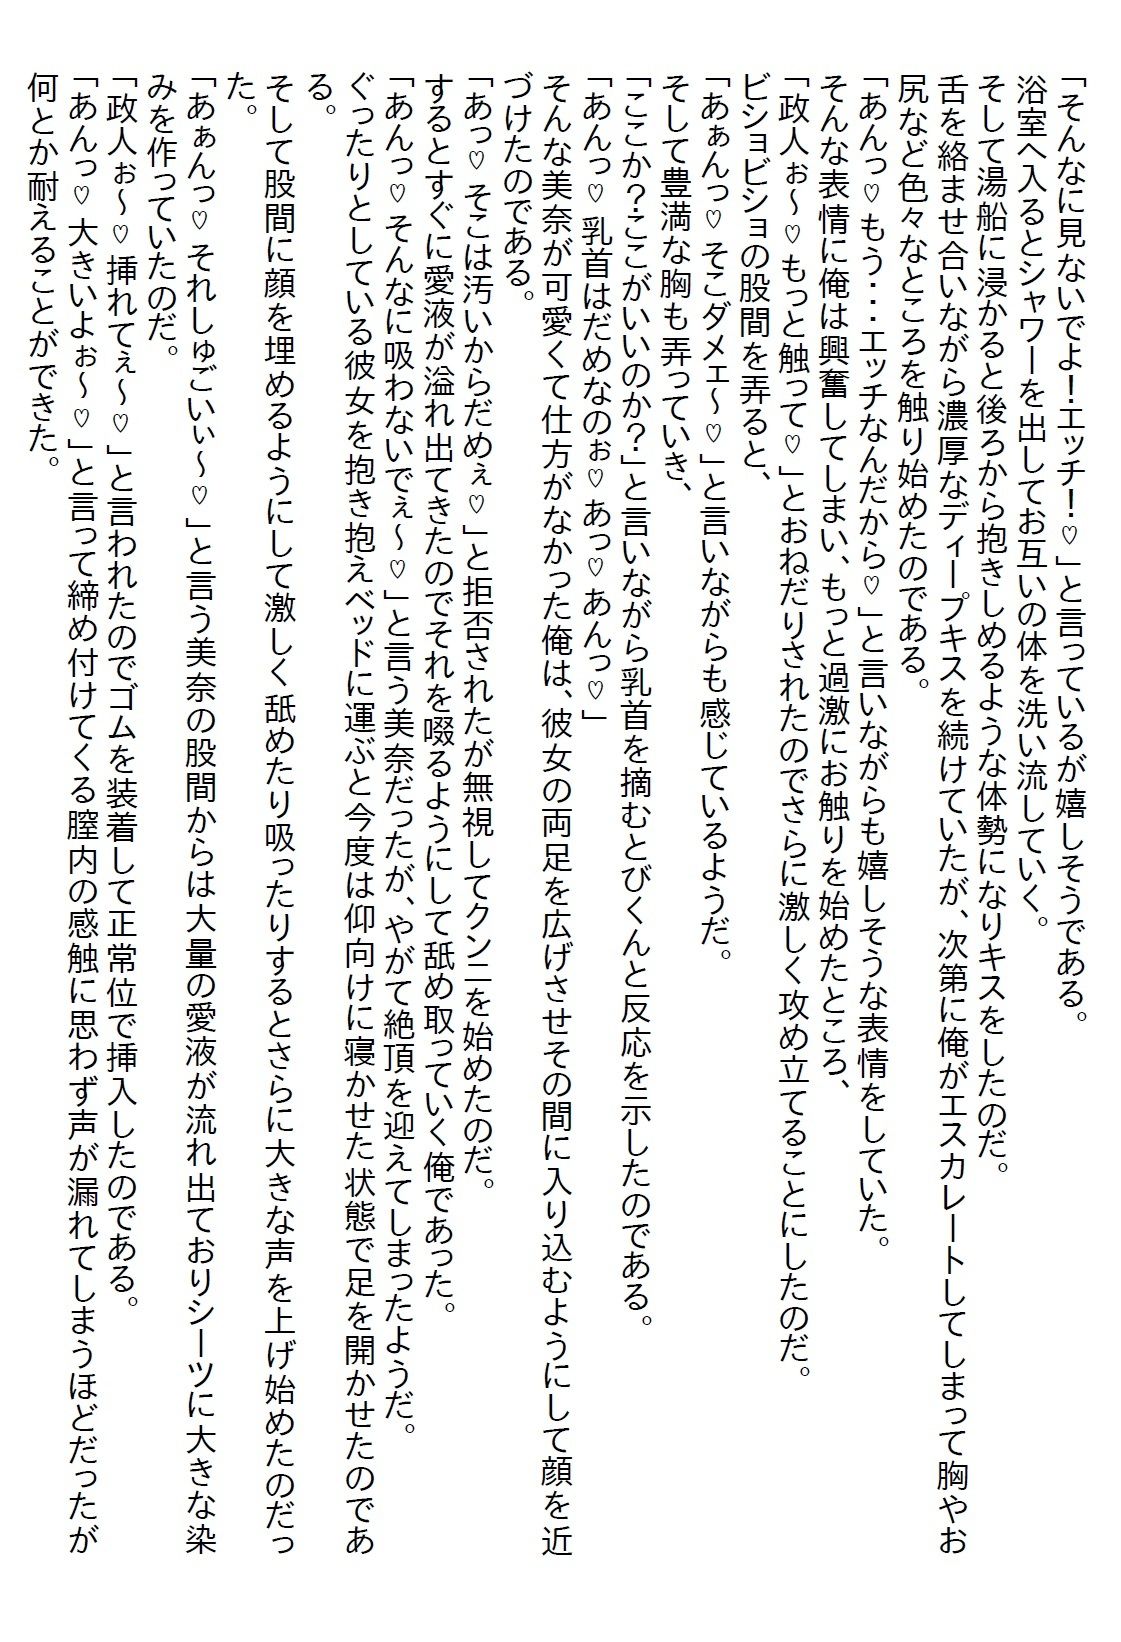 「そんなに見ないでよ！エッチ！♡」と言っているが嬉しそうである。
浴室へ入るとシャワーを出してお互いの体を洗い流していく。
そして湯船に浸かると後ろから抱きしめるような体勢になりキスをしたのだ。
舌を絡ませ合いながら濃厚なディープキスを続けていたが、次第に俺がエスカレートしてしまって胸やお
尻など色々なところを触り始めたのである。
「あんっ♡もう・・・エッチなんだから♡」と言いながらも嬉しそうな表情をしていた。
そんな表情に俺は興奮してしまい、もっと過激にお触りを始めたところ、
「政人ぉ～♡もっと触って♡」とおねだりされたのでさらに激しく攻め立てることにしたのだ。
ビショビショの股間を弄ると、
「あぁんっ♡そこダメェ～♡」と言いながらも感じているようだ。
そして豊満な胸も弄っていき、
「ここか？ここがいいのか？」と言いながら乳首を摘むとびくんと反応を示したのである。
「あんっ♡乳首はだめなのぉ♡あっ♡あんっ♡」
そんな美奈が可愛くて仕方がなかった俺は、彼女の両足を広げさせその間に入り込むようにして顔を近
づけたのである。
「あっ♡そこは汚いからだめぇ♡」と拒否されたが無視してクンニを始めたのだ。
するとすぐに愛液が溢れ出てきたのでそれを啜るようにして舐め取っていく俺であった。
「あんっ♡そんなに吸わないでぇ～♡」と言う美奈だったが、やがて絶頂を迎えてしまったようだ。
ぐったりとしている彼女を抱き抱えベッドに運ぶと今度は仰向けに寝かせた状態で足を開かせたのであ
る。
そして股間に顔を埋めるようにして激しく舐めたり吸ったりするとさらに大きな声を上げ始めたのだっ
た。
「あぁんっ♡それしゅごいぃ～♡」と言う美奈の股間からは大量の愛液が流れ出ておりシーツに大きな染
みを作っていたのだ。
「政人ぉ～♡挿れてぇ～♡」と言われたのでゴムを装着して正常位で挿入したのである。
「あんっ♡大きいよぉ～♡」と言って締め付けてくる膣内の感触に思わず声が漏れてしまうほどだったが
何とか耐えることができた。